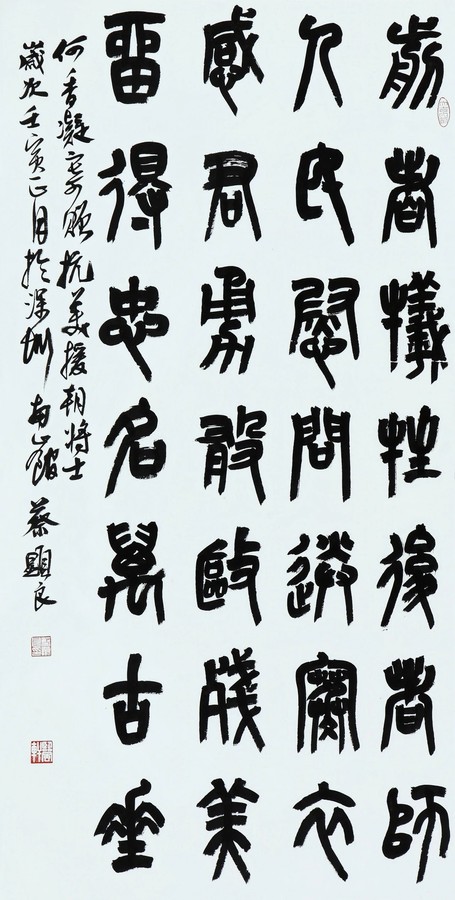 前者犧牲後者師
人民慰問送寒衣
感君勇敢毆殘美
留得忠名萬古垂
何香凝寄贈抗美援朝将士
歲次壬寅正月於深圳南山館 蔡顯良